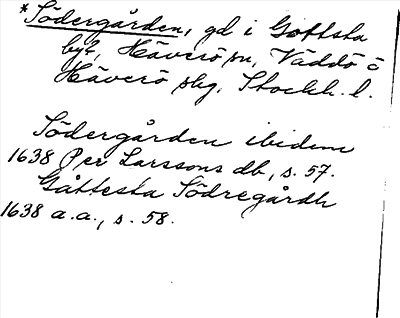 *Södergården, gd i Gottsta
by, Häverö sn, Väddö o
Häverö skg, Stockh. l.
Södergården ibidem
1638 Per Larssons db, s. 57.
Gåttesta Södregårdh
1638 a.a., s. 58.